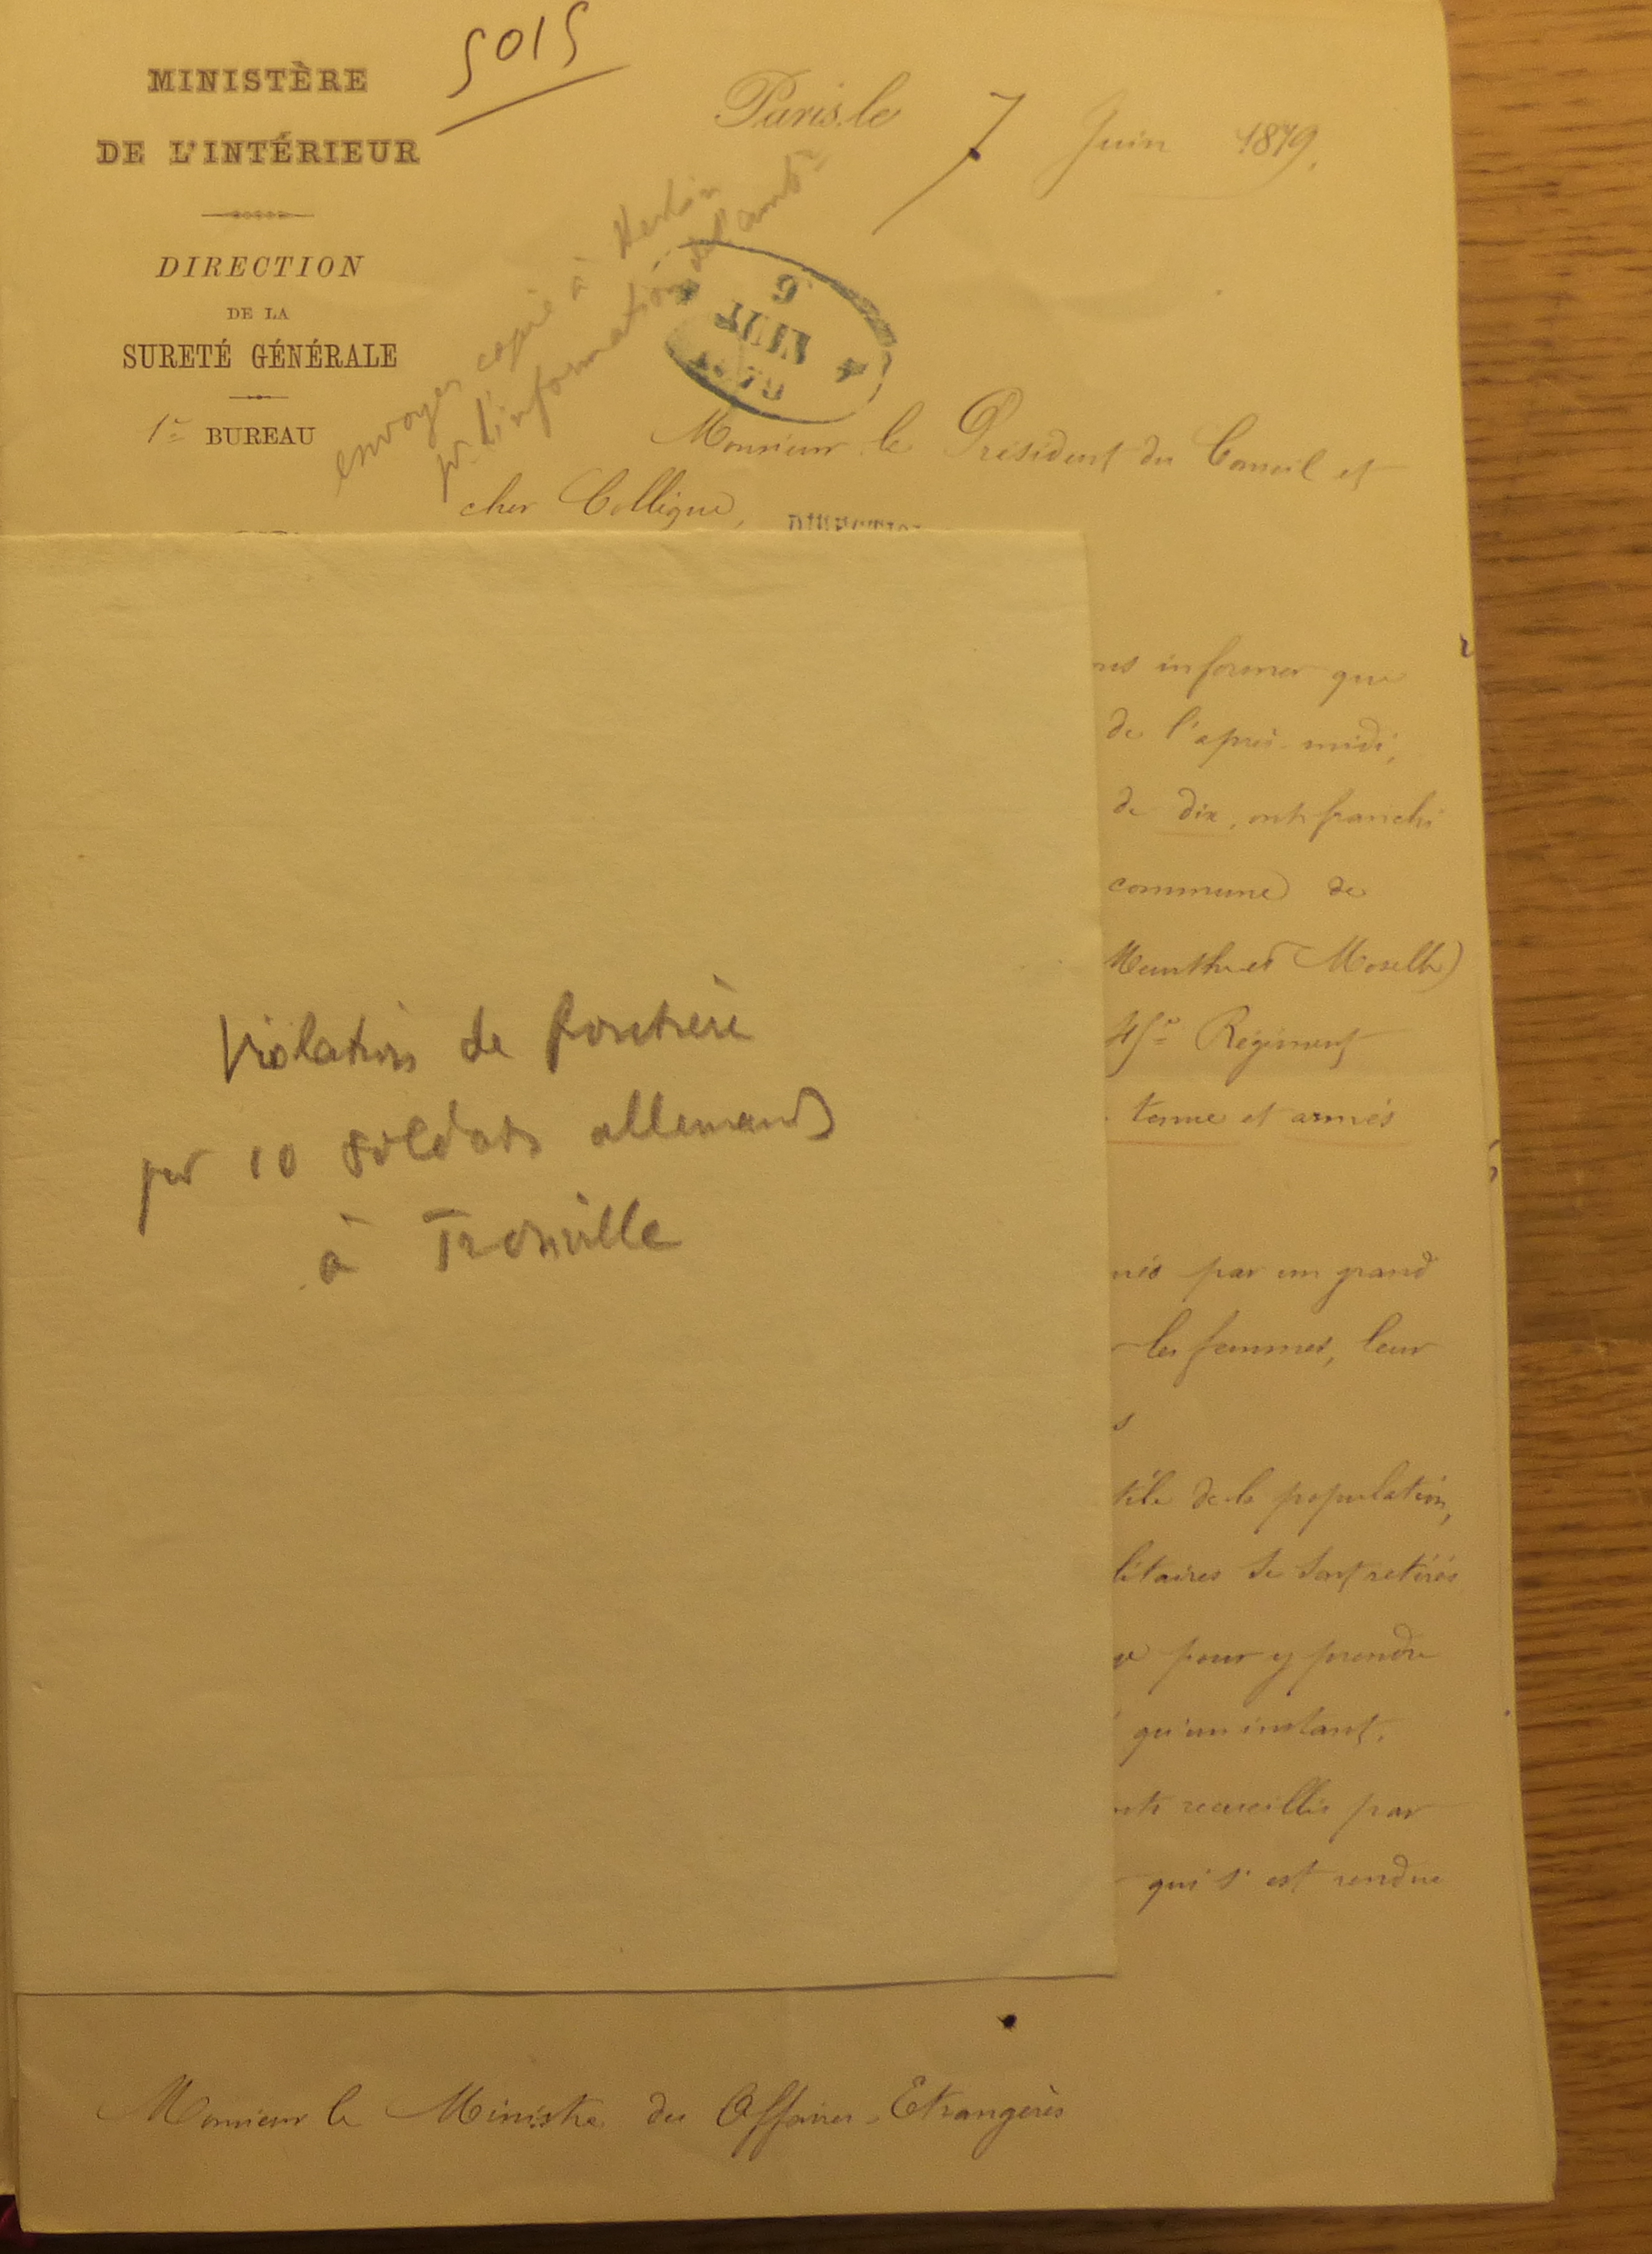 5015
MINISTÈRE
DE L'INTÉRIEUR
DIRECTION
DE LA
SURETÉ GÉNÉRALE
1er BUREAU
Paris, le 7 Juin 1879.
envoyer copie à Berlin
pr l'information de l'ambr
9
JUIN
Monsieur le Président du Conseil et
cher Collègue,
informer que
de l'après-midi,
de dix, ont franchi
commune de
Meurthe et Moselle)
45e Régiment
tenue et armés
par un grand
les femmes, leur
de la population,
se sont retirés
pour y prendre
qu'un instant.
recueillis par
qui s'est rendue
Violation de frontière
par 10 soldats allemands
à Tronville
Monsieur le Ministre des Affaires-Etrangères